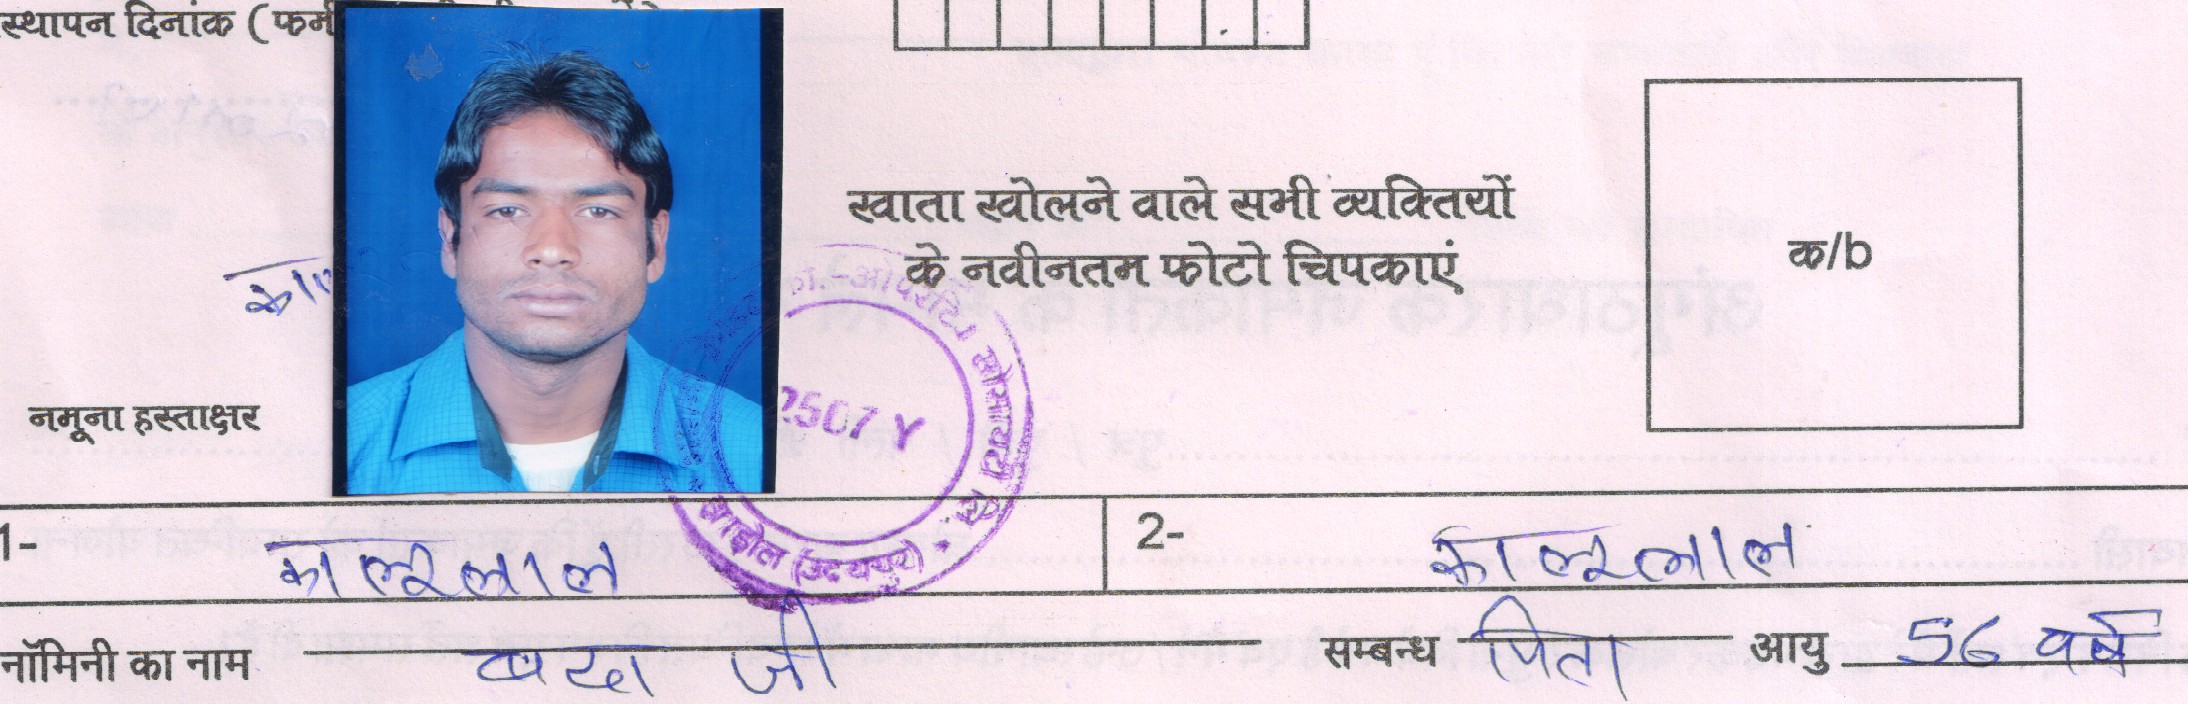 स्थापन दिनांक (फर्म
खाता खोलने वाले सभी व्यक्तियों
के नवीनतम फोटो चिपकाएं
क/b
नमूना हस्ताक्षर
को-आपरेटिव सोसायटी लि.
2507
झाड़ोल (उदयपुर)
1- कालूलाल
2- कालूलाल
नॉमिनी का नाम जी सम्बन्ध पिता आयु 56 वर्ष